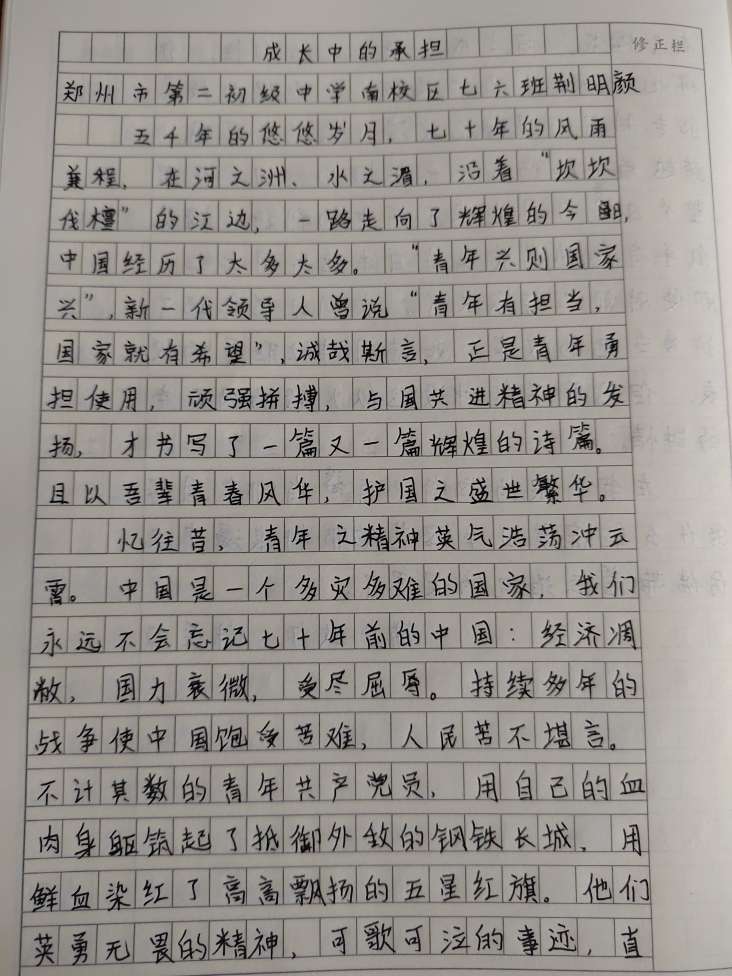 成长中的承担
修正栏
郑州市第二初级中学南校区七六班荆明颜
五千年的悠悠岁月，七十年的风雨
兼程，在河之洲、水之湄，沿着“坎坎
伐檀”的江边，一路走向了辉煌的今朝，
中国经历了太多太多。“青年兴则国家
兴”，新一代领导人曾说“青年有担当，
国家就有希望”，诚哉斯言，正是青年勇
担使用，顽强拼搏，与国共进精神的发
扬，才书写了一篇又一篇辉煌的诗篇。
且以吾辈青春风华，护国之盛世繁华。
忆往昔，青年之精神英气浩荡冲云
霄。中国是一个多灾多难的国家，我们
永远不会忘记七十年前的中国：经济凋
敝，国力衰微，受尽屈辱。持续多年的
战争使中国饱受苦难，人民苦不堪言。
不计其数的青年共产党员，用自己的血
肉身躯筑起了抵御外敌的钢铁长城，用
鲜血染红了高高飘扬的五星红旗。他们
英勇无畏的精神，可歌可泣的事迹，直